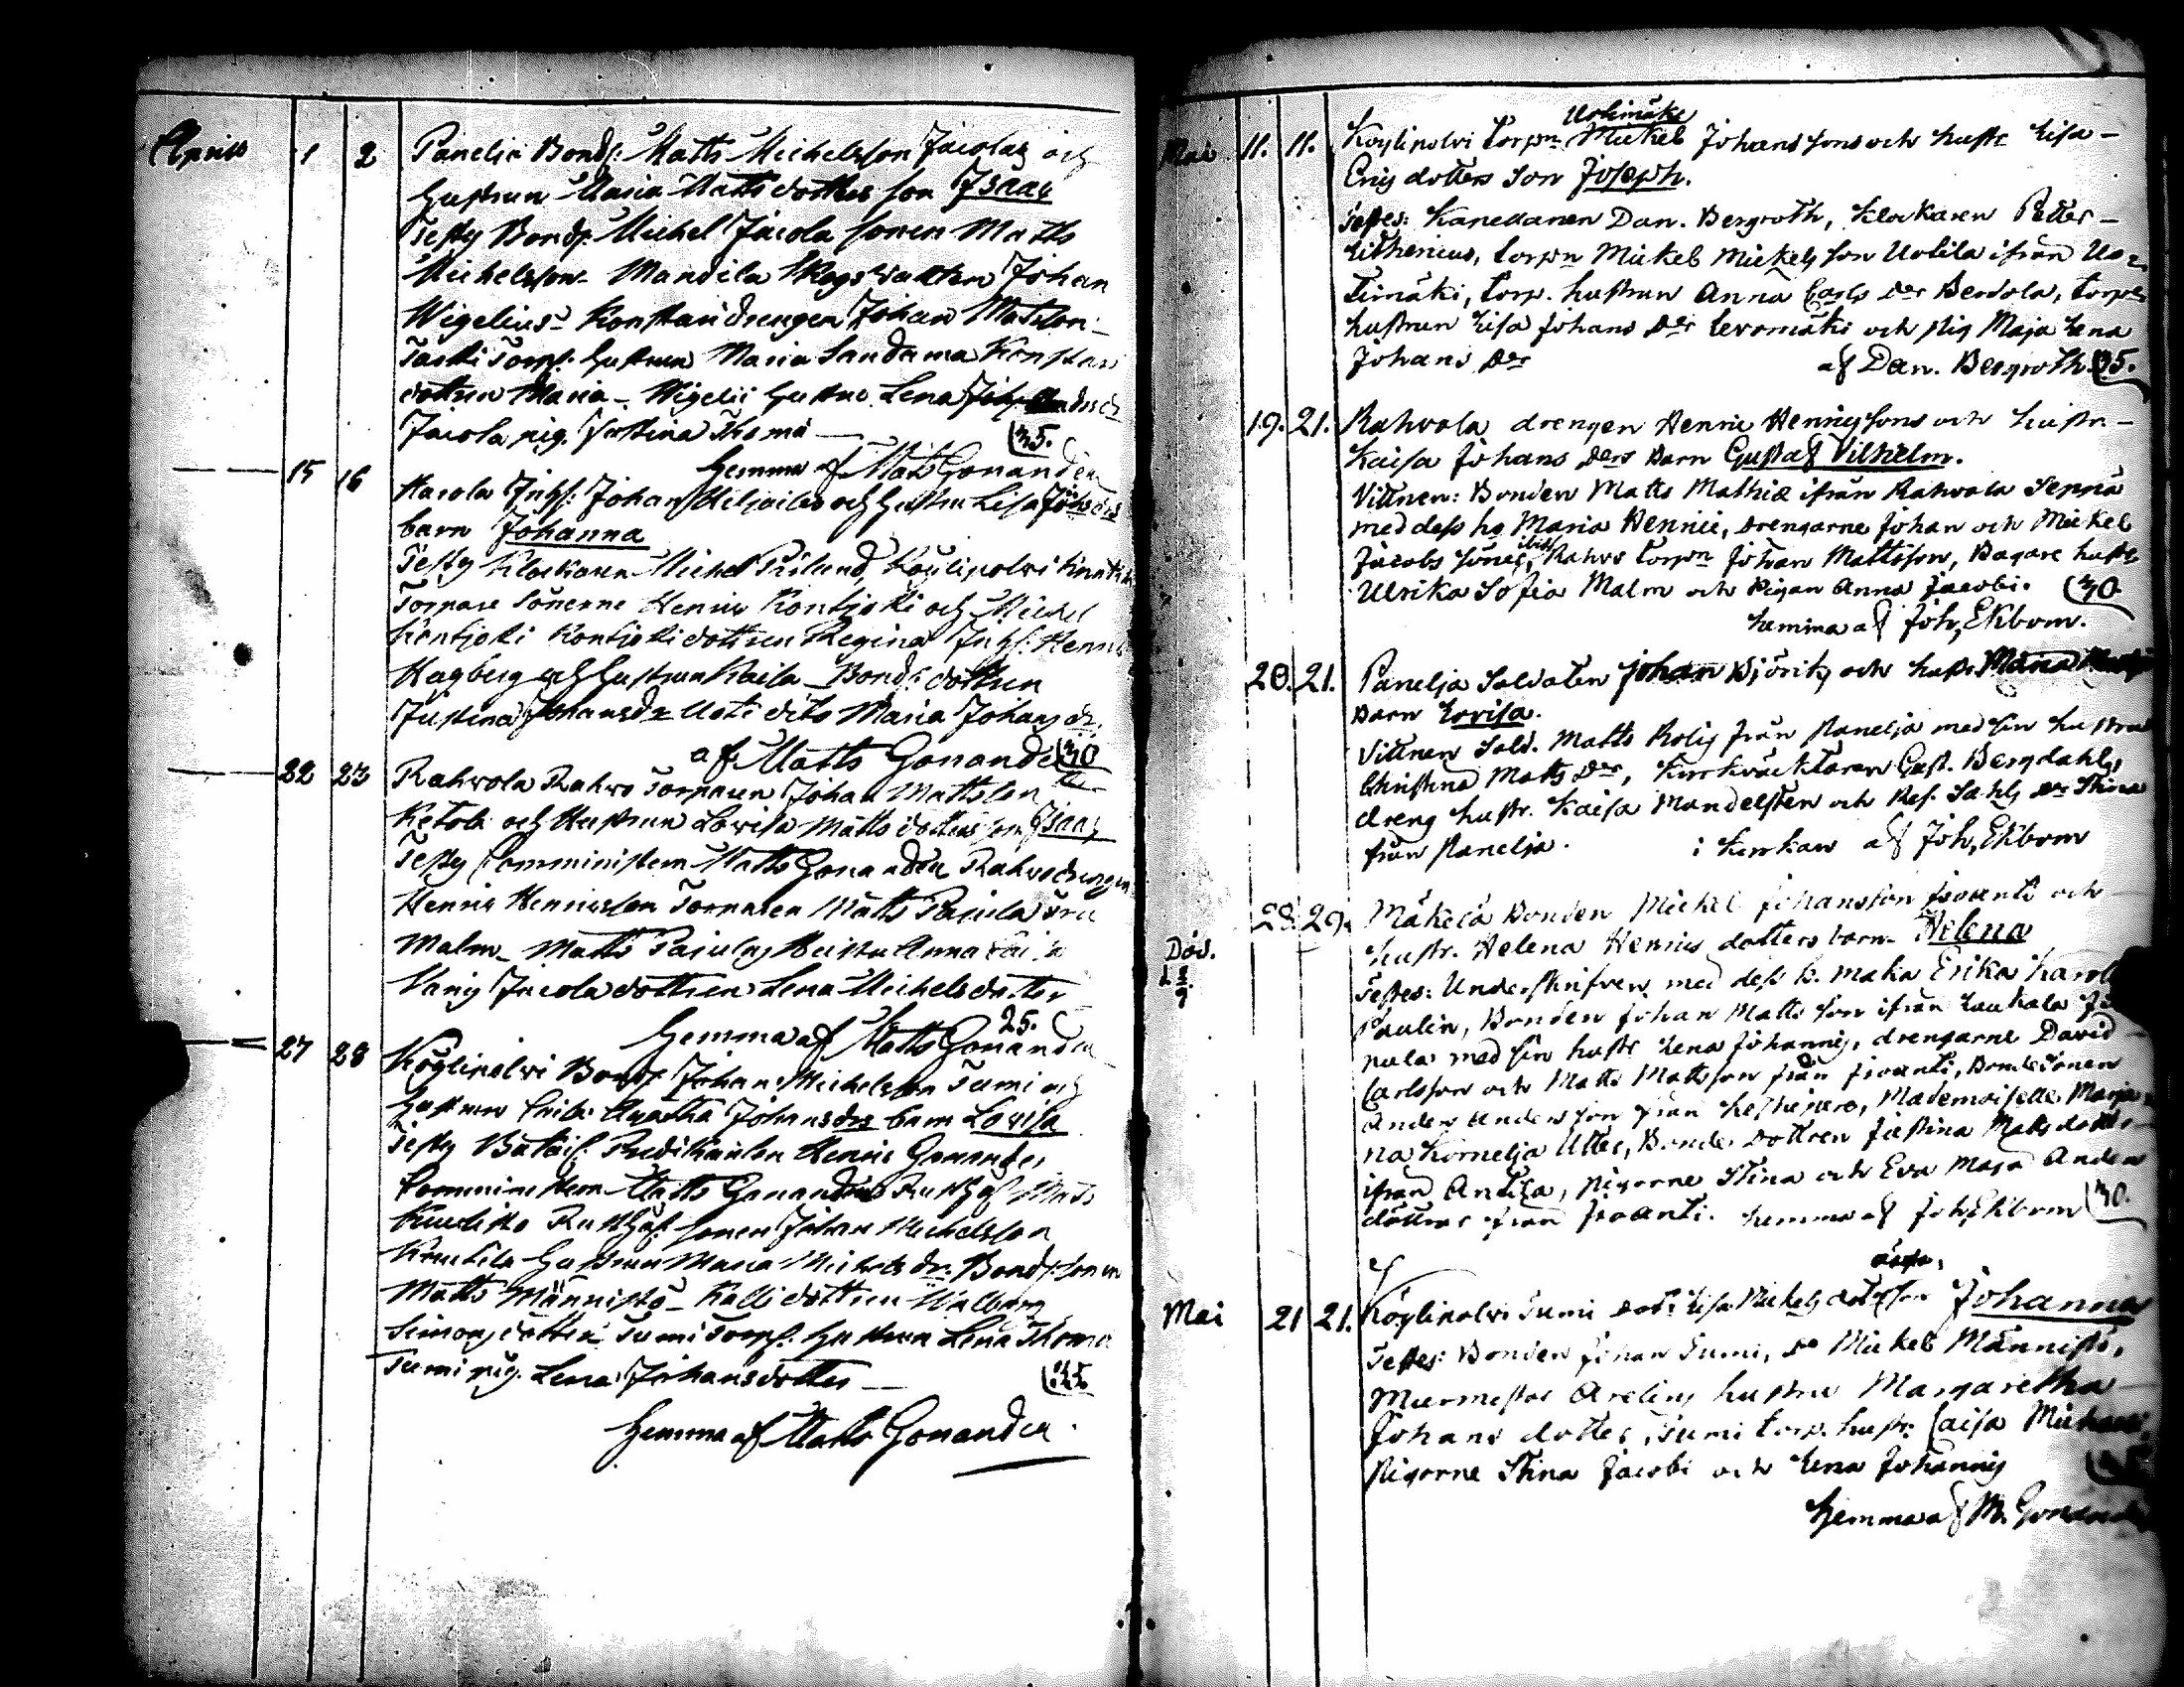 Aprill 1 2 Panelia Bond: Matts Michelsson Jacolas och
hustrun Maria Matts dotters son Isaac
Testes Bonds. Michel Jacola sonen Matts
Michelsson Mandila Skogswakten Johan
Wigelius Konstari drengen Johan Matsson
Taski Torp. hustrun Maria Sandama Konstari
dottren Maria Wigelii hustru Lena
Jacola pig. Justina Thomæ 35.
hemma af Matts Gonander
15 16 Harola Inhs: Johan och hustru Lisa Johs drs
barn Johanna
Testes Klockaren Michel Köylipolvi
Torpare Sönerne Henric Kontjoki och Michel
Kontjoki Kontjoki dottren Regina Inhs: Henric
Hagberg och hustrun Kaisa Bonds dottren
Justina Johansdr dito Maria Johans dr.
af Matts Gonander 30
22 23 Rahvola Rahvo Torparen Johan Mattsson
Ketola och Hustrun Lovisa Matts dotters son Isaac
Testes Comministern Matts Gonander Rahvo drengen
Henric Henricsson Torparen Matts Pajula Fru
Malm Matts Pajulas Hustru Anna
Jacola dottren Lena Michelsdotter
25.
hemma af Matts Gonander
27 28 Köylipolvi Bonds Johan Michelsson Tumi och
hustrun Agatha Johansdrs barn Lovisa
Testes Batails Predikanten Henric Gonander
Comministern Matts Gonander Rusth. Matts
Rusth. sonen Johan Michelsson
Knutila hustrun Maria Michels dr. Bonds sonen
Matts Männistö Kalli dottren Walborg
Simons dotter Tumi Torps. hustrun Lena Thomæ
Tumi pig. Lena Johansdotter 35
hemma af Matts Gonander
Maii 11. 11. Köylipolvi torpn Uotimäki Mickel Johans sons och hustr Lisa
Erics dotters Son Joseph.
Testes: Dan. Bergroth, Klockaren Petter
Lithenius, torpn Mickel Mickels son Uotila ifrån Uo=
timäki, torp. hustrun Anna Carls dr torp
hustrun Lisa Johans dr Levomäki och pig Maja Lena
Johans dr af Dan. Bergroth. 35.
19. 21. Rahvola drengen Henric Henricssons och hustr
Kaisa Johans drs barn Gustaf Vilhelm.
Vittnen: Bonden Matts Mathiæ ifrån Rahvola Seppä
med dess h. Maria Henrici, drengarne Johan och Mickel
Jacobs söner ibid Rahvo torpn Johan Mattsson, Bagare hustr
Ulrika Sofia Malm och Pigan Anna Jacobi. 30
hemma af Joh, Ekbom.
20. 21. Panelja Soldaten Johan Björik och hustr Maria
barn Lovisa.
Vittnen Sold. Matts Rolig från Panelja med sin hustru
Christina Matts dr, Kyrkväcktaren Gust. Bergdahl,
dreng hustr. Kaisa Mandelsten och Ref. Sahls dr Stina
från Panelja. i Kyrkan af Joh, Ekbom
28. 29. Mäkelä Bonden Mickel Johansson Jvanti och
Död. hustr. Helena Henrics dotters barn Helena
Testes: Underskrifven med dess k. maka Erika
Paulin, Bonden Johan Matts son ifrån
pula med sin hustr Lena Johannis, drengarne David
Carlsson och Matts Mattsson från Jvanti, Bondesonen
Anders Andersson från Mademoiselle Maja
na Kornelja Utter, Bonde dottren Justina Matsdotter
ifrån Antila, pigorne Stina och Eva Maja Anders
döttrar från Jvanti. hemma af Joh, Ekbom 30.
Maii 21 21. Köylipolvi Tumi Lisa Mickels dotters Johanna
Testes: Bonden Johan Tumi, do Mickel Männistö,
Murmestar hustru Margaretha
Johans dotter, Tumi torp. hustr. Caisa
Pigorne Stina Jacobi och Lena Johannis
hemma af M. Gonander